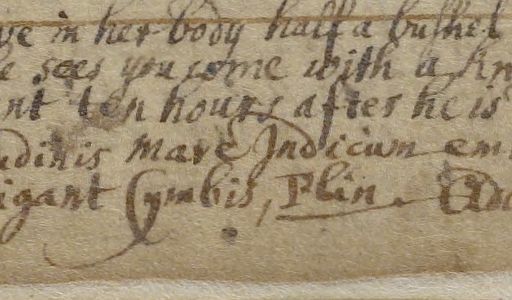 ve in her body half a bushel
e sees you come with a kn
nt ten hours after he is
udinis mare Indicum em
igant Cymbis, Plin. Ad